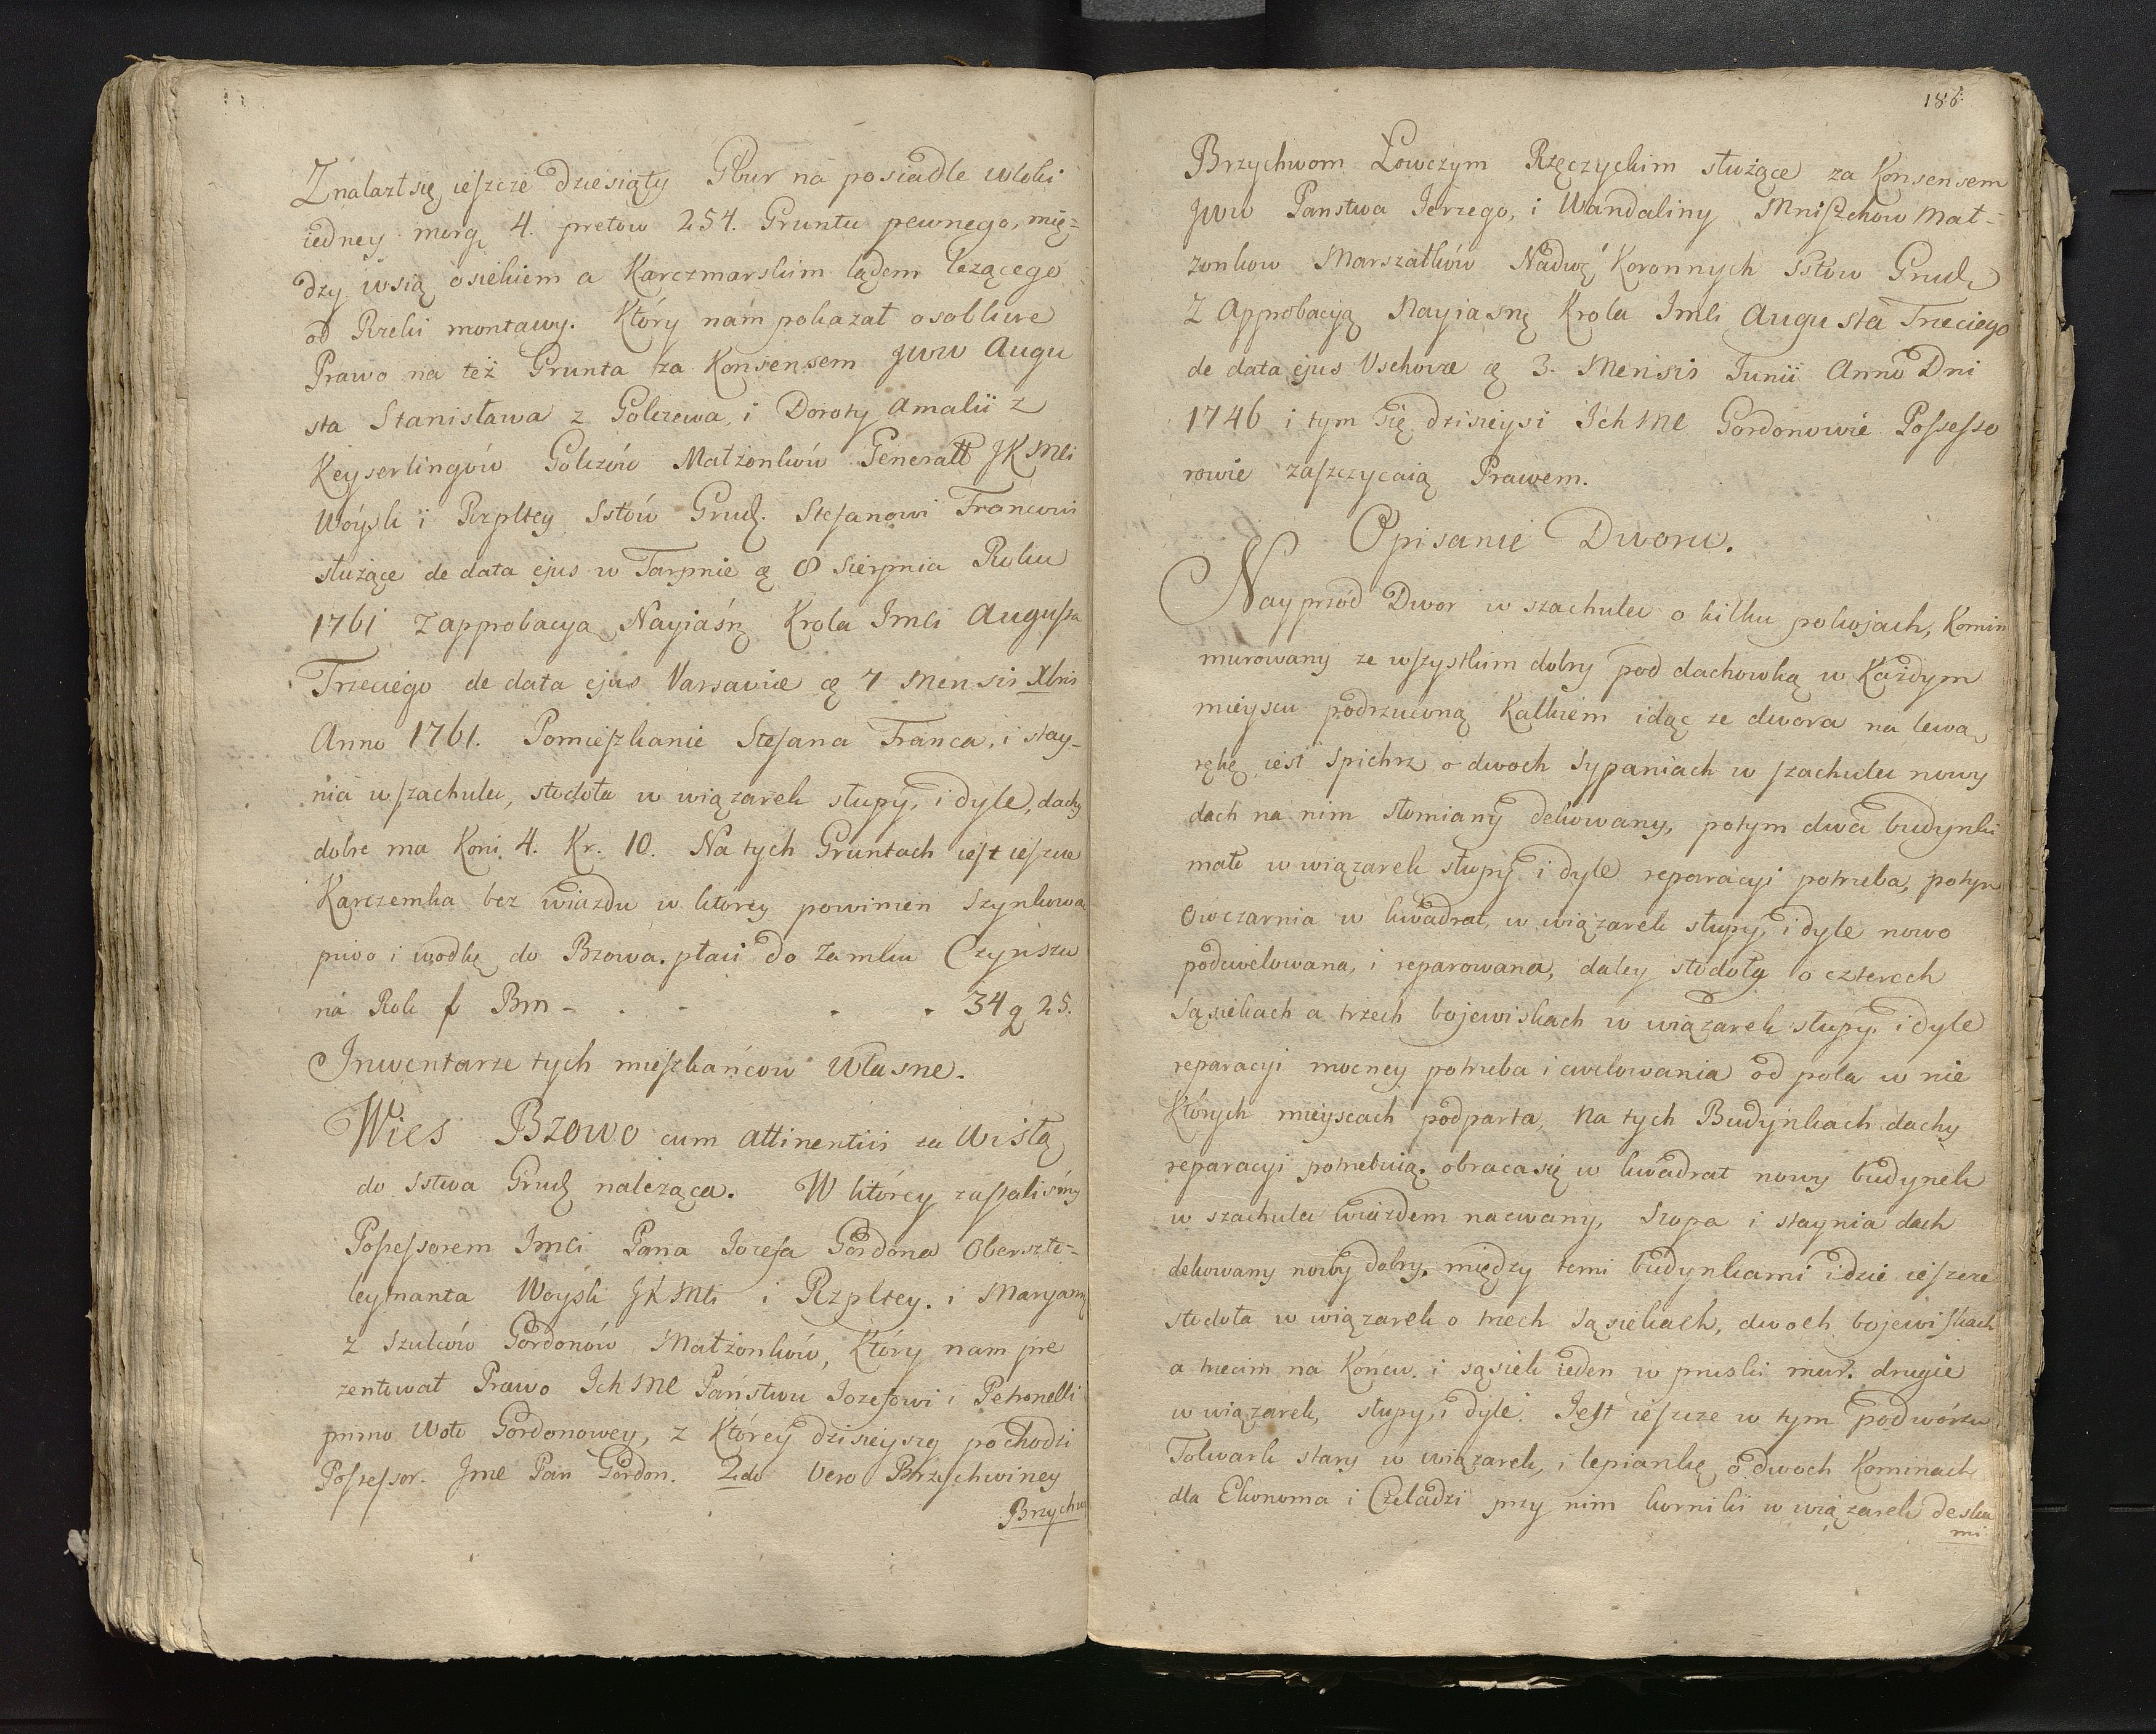 Znalazł się ieszcze dziesiąty Gbur na posiadle włoki
iedney morg 4. pretow 254. Gruntu pewnego, mię=
dzy wsią osiekiem a Karczmarskim lądem leżącego
od Rzeki montawy. Który nam pokazał osobliwe
Prawo na też Grunta za Konsensem JWW Augu
sta Stanisława z Golczewa, i Doroty Amalii z
Keyserlingów Golczów Małżonków Generałł JKMci
Woysk i Rzpltey Sstów Grudz. Stefanowi Francowi
służące de data ejus w Tarpnie ą 8 Sierpnia Roku
1761 z approbacyą Nayiaśn Krola Imci Augusta
Trzeciego de data ejus Varsaviæ ą 7 Mensis Xbris
Anno 1761. Pomieszkanie Stefana Franca, i stay-
nia w szachulec, stodoła w wiązarek słupy, i dyle, dachy
dobre ma Koni. 4. Kr. 10. Na tych Gruntach iest ieszcze
Karczemka bez wiazdu w ktorey powinien Szynkowa
piwo i wodkę do Bzowa. płaci do Zamku Czynszu
na Rok f Bm - . - . . 34 g 25.
Inwentarze tych mieszkańcow własne.
Wies Bzowo cum attinentiis za Wisłą
do Sstwa Grudz należąca. W ktorey zastaliśmy
Possessorem Imci Pana Iozefa Gordona Oberszte-
leytnanta Woysk JKMci i Rzpltey. i Maryanny
z Szulców Gordonów Małżonków, Który nam pre
zentował Prawo Ich MC Państwu Iozefowi i Petronelli
primo Voto Gordonowey, z Którey dzisieyszy pochodzi
Possessor. Jme Pan Gordon. 2do vero Brzychwiney
Brzychw
186.
Brzychwom Łowczym Rzęczyckim służące za Konsensem
JWW Panstwa Ierzego, i Wandaliny Mniszchow Mał-
zonkow Marszałków Nadwr Koronnych Sstów Grudz
Z Approbacyą Nayiasn Krola Imci Augusta Trzeciego
de data ejus Vschovæ ą 3. Mensis Iunii Anno Dni
1746 i tym się dzisieysi Ich MC Gordonowie Possesso
rowie zaszczycaią Prawem.
Opisanie Dworu.
Nayprzód Dwor w szachulec o kilku pokojach, Komin
murowany ze wszystkim dobry pod dachowką w Każdym
mieyscu podrzuconą Kalkiem idąc ze dwora na lewą
rękę iest Spichrz o dwoch Sypaniach w szachulec nowy
dach na nim słomiany dekowany, potym dwa budynki
małe w wiązarek słupy i dyle reparacyi potrzeba, potym
Owczarnia w kwadrat, w wiązarek słupy, i dyle nowo
podcwelowana, i reparowana, daley stodoły o czterech
Sąsiekach a trzech bojewiskach w wiązarek słupy, i dyle
reparacyi mocney potrzeba i cwelowania od pola w nie
Których mieyscach podparta, na tych Budynkach dachy
reparacyi potrzebuią. obraca się w kwadrat nowy budynek
w szachulec wiazdem nazwany, Szopa i staynia dach
dekowany nowy dobry. między temi budynkami idzie ieszcze
stodoła w wiązarek o trzech Sąsiekach, dwoch bojewiskach
a trzecim na Końcu. i sąsiek ieden w pruski mur. drugie
w wiązarek, słupy, i dyle. Iest ieszcze w tym podwórzu
Folwark stary w wiązarek, i lepiankę o dwoch Kominach
dla Ekonoma i Czeladzi przy nim kurniki w wiązarek deska
mi